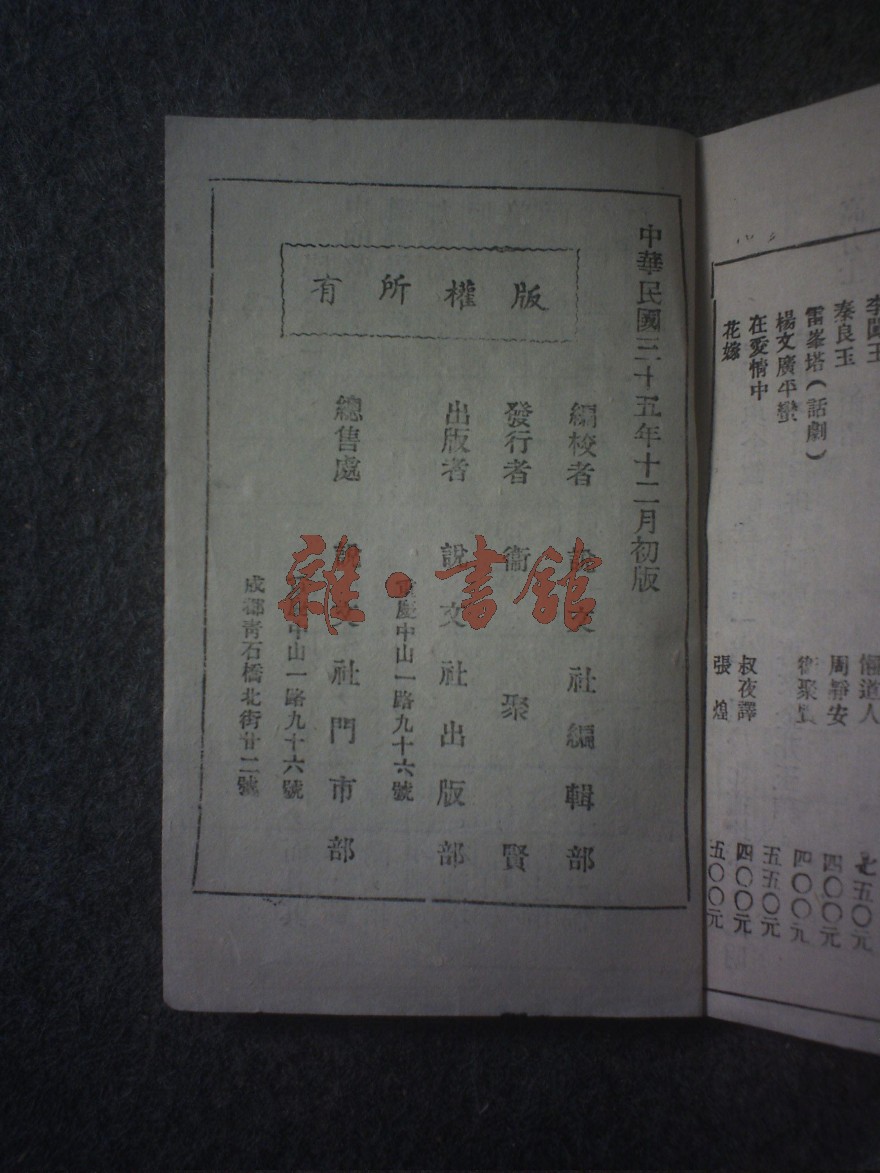 中華民國三十五年十二月初版
版權所有
編校者 說文社編輯部
發行者 衞聚賢
出版者 說文社出版部
重慶中山一路九十六號
總售處 說文社門市部
中山一路九十六號
成都靑石橋北街廿二號
雜·書館
李闖王 惺道人 七五〇元
秦良玉 周靜安 四〇〇元
雷峯塔（話劇） 衞聚賢 四〇〇元
楊文廣平蠻 五五〇元
在愛情中 叔夜譯 四〇〇元
花嫁 張煌 五〇〇元